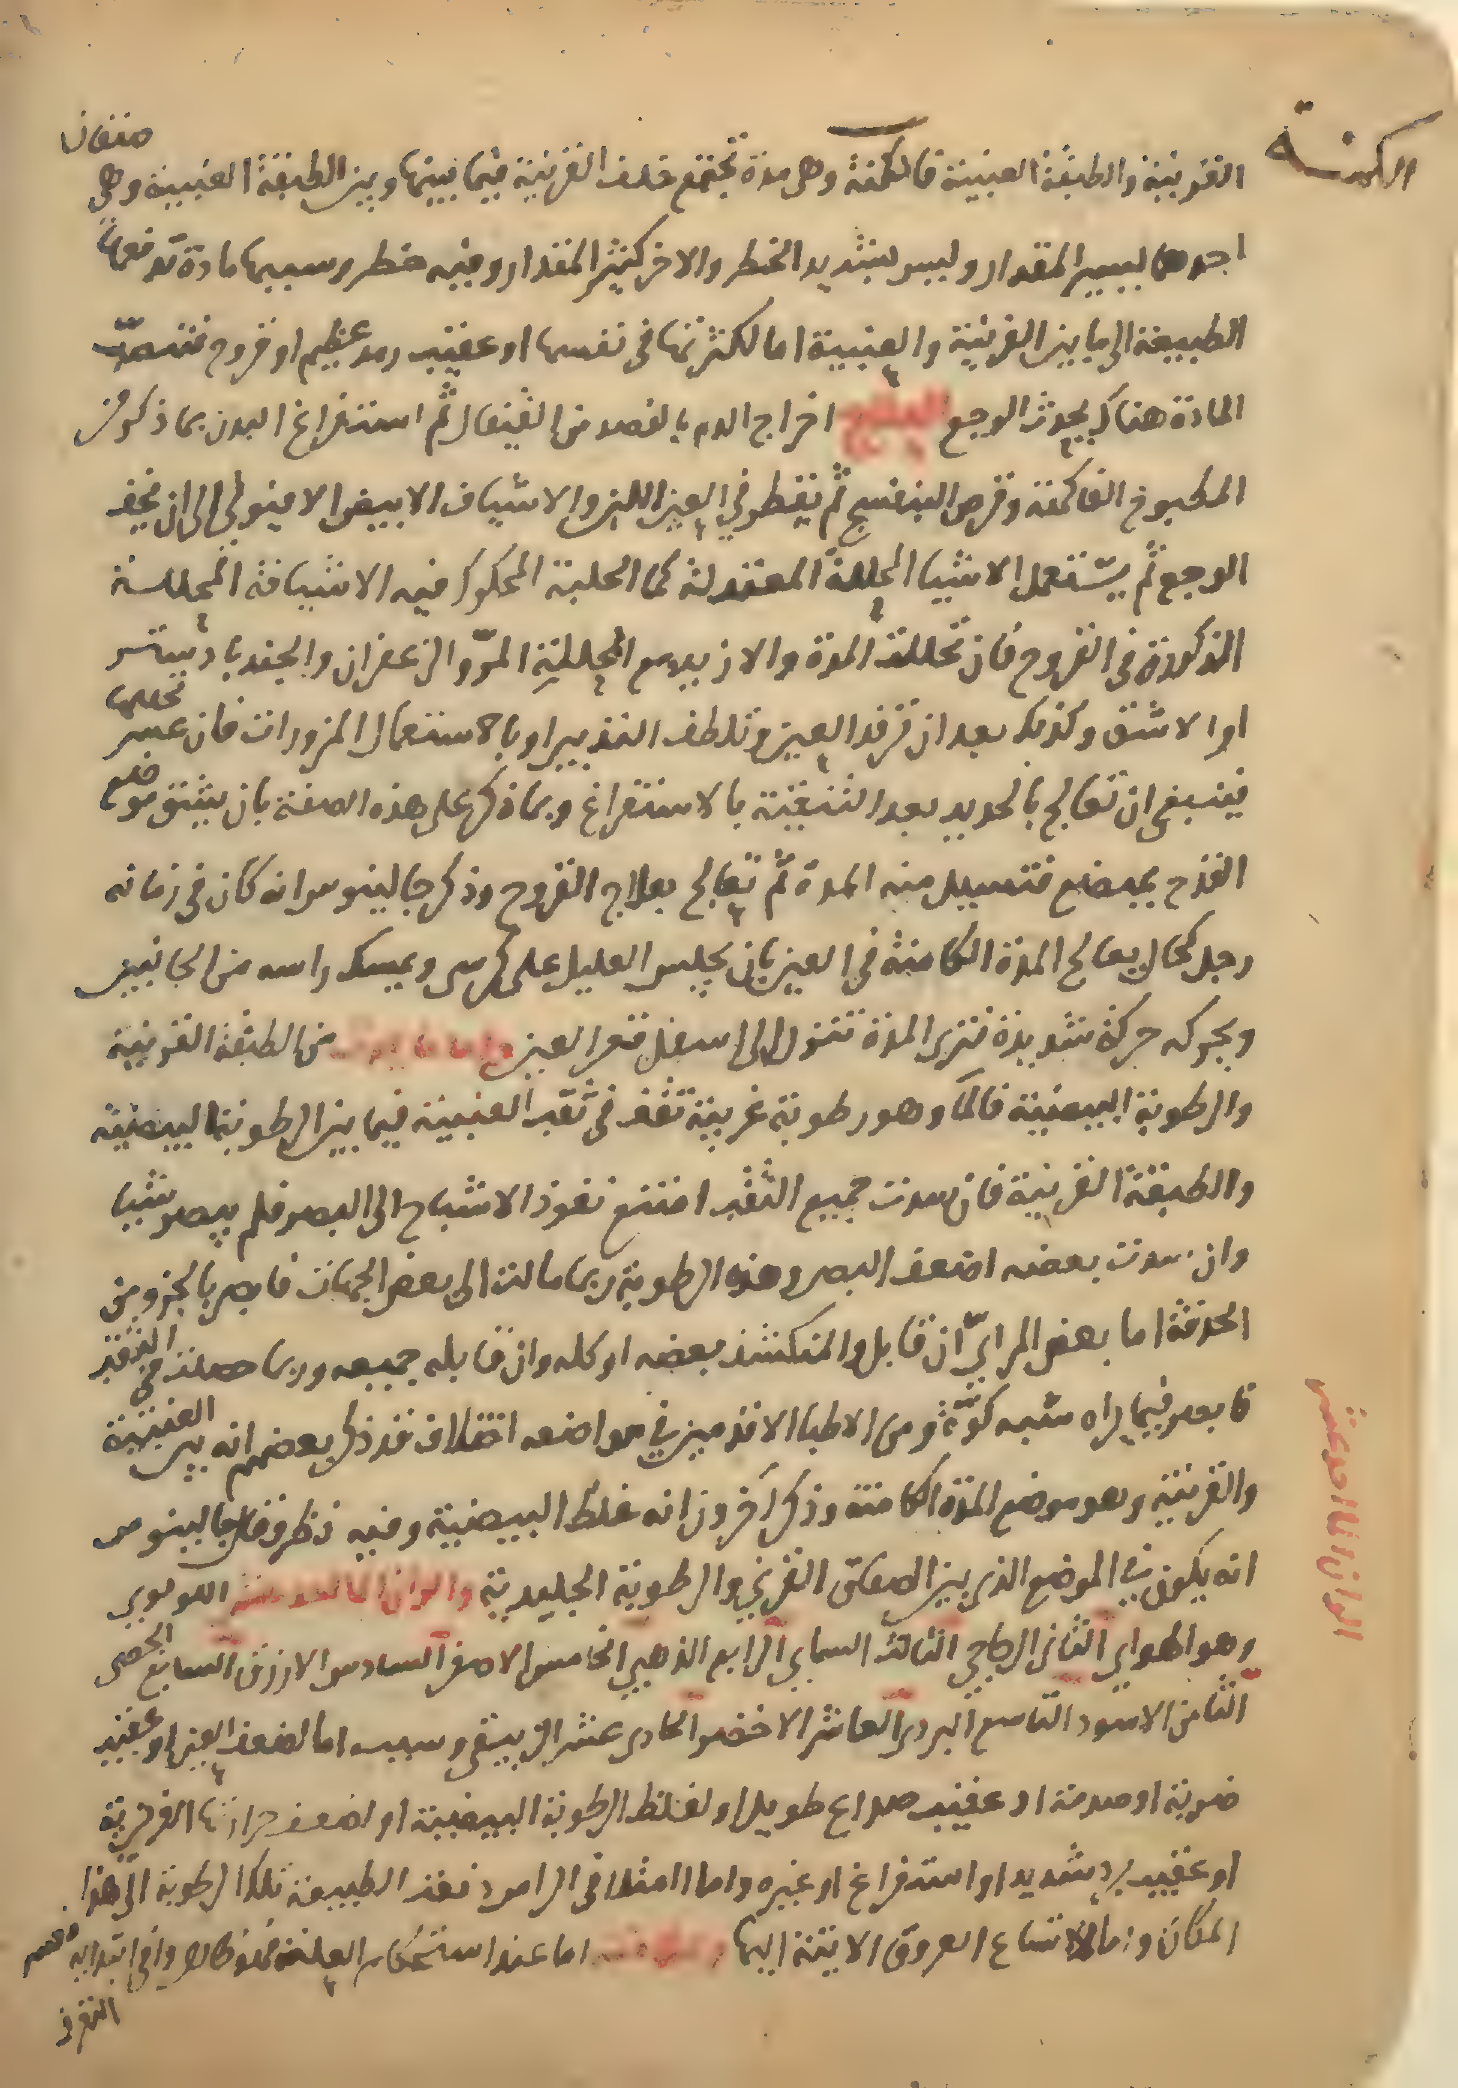 الكمنة
القرنية والطبقة العنبية فالكمنة وهى مدة تجتمع خلف القرنية فيما بينها وبين الطبقة العنبية وهى صنفان
احدهما يسير المقدار وليس بشديد الخطر والاخر كثير المقدار وفيه خطر وسببها مادة تدفعها
الطبيعة الى ما بين القرنية والعنبية اما لكثرتها فى نفسها او عقيب رمد عظيم او قروح فتنصب
المادة هناك يحدث الوجع العلاج اخراج الدم بالفصد من القيفال ثم استفراغ البدن بما ذكر من
المطبوخ الفاكهة وقرص البنفسج ثم يقطر في العين اللبن والاشياف الابيض الافيونى الى ان يخف
الوجع ثم يستعمل الاشيا المحللة المعتدلة كما الحلبة المحكوك فيه الاشيافة المحللة
المذكورة في القروح فان تحللت المدة والا زيد مع المحللة المرّ والزعفران والجندبادستر
او الاشق وكذلك بعد ان ترفد العين وتلطف التدبير اولا باستعمال المزورات فان عسر تحللها
فينبغى ان تعالج بالحديد بعد التنقية بالاستفراغ وبما ذكر على هذه الصفة بان يشق موضع
القدح بمبضع فتسيل منه المدة ثم تعالج بعلاج القروح وذكر جالينوس انه كان في زمانه
رجل كحال يعالج المدة الكامنة في العين بان يجلس العليل على كرسى ويمسك راسه من الجانبين
ويحركه حركة شديدة فترى المدة تنزل الى اسفل قعر العين من الطبقة القرنية
والرطوبة البيضية فالما وهو رطوبة غريبة تقف فى ثقب العنبية فيما بين الرطوبة البيضية
والطبقة القرنية فان سدت جميع الثقب امتنع نفوذ الاشباح الى البصر فلم يبصر شيا
وان سدت بعضه اضعف البصر وهذه الرطوبة ربما مالت الى بعض الجهات فابصر بالجزو من
الحدقة اما بعض المراىّ ان قابل والمنكشف بعضه او كله وان قابله جميعه وربما حصلت في الثقب
فابصر فيما يراه شبه كوّة ومن الاطبا الاقدمين في مواضعه اختلاف فقد ذكر بعضهم انه بين العنبية
والقرنية وهو موضع المدة الكامنة وذكر اخرون انه غلظ البيضية وفيه نظر وقال جالينوس
انه يكون في الموضع الذى بين الصفاق القرنى والرطوبة الجليدية والوان الما احد عشر اللولوى
وهو الهواى الثانى الزجاجى الثالث السماى الرابع الذهبى الخامس الاصفر السادس الازرق السابع الجصى
الثامن الاسود التاسع البردى العاشر الاخضر الحادى عشر الزيبقى وسببه اما لضعف العين او عقيب
ضربة او صدمة او عقيب صداع طويل او لغلظ الرطوبة البيضية او لضعف حرارتها الغريزية
او عقيب برد شديد او استفراغ او غيره واما امتلا فى الراس دفعت الطبيعة تلك الرطوبة الى هذا
المكان واما لاتساع العروق الاتية اليها اما عند استحكام العلة
التفرد
الوان الما احد عشر